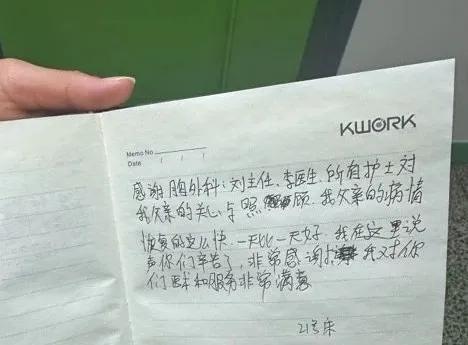 KWORK
Memo No.
Date / / /
感谢胸外科:刘主任、李医生、所有护士对
我父亲的关心与照顾.我父亲的病情
恢复的这么快.一天比一天好.我在这里说
声你们辛苦了,非常感谢.我对你
们医术和服务非常满意
21号床